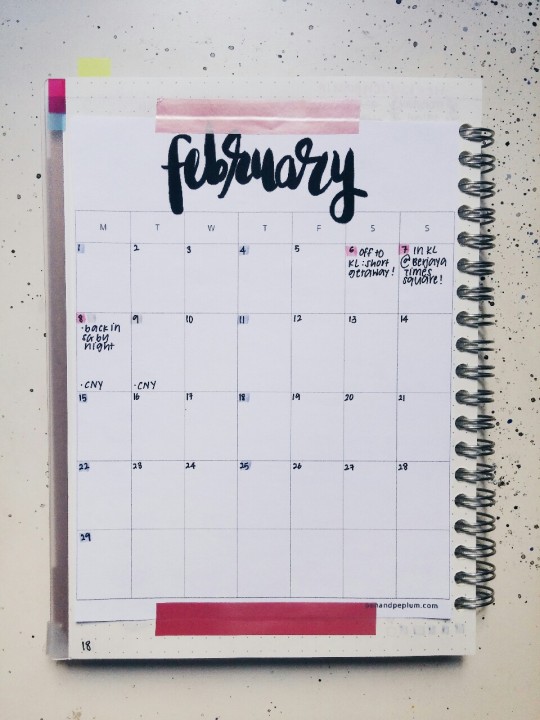 february
M T W T F S S
1 2 3 4 5 6 off to 7 in KL
KL : short @ Berjaya
getaway! times
square!
8 9 10 11 12 13 14
·back in
SG by
night
·CNY ·CNY
15 16 17 18 19 20 21
22 23 24 25 26 27 28
29
penandpeplum.com
18